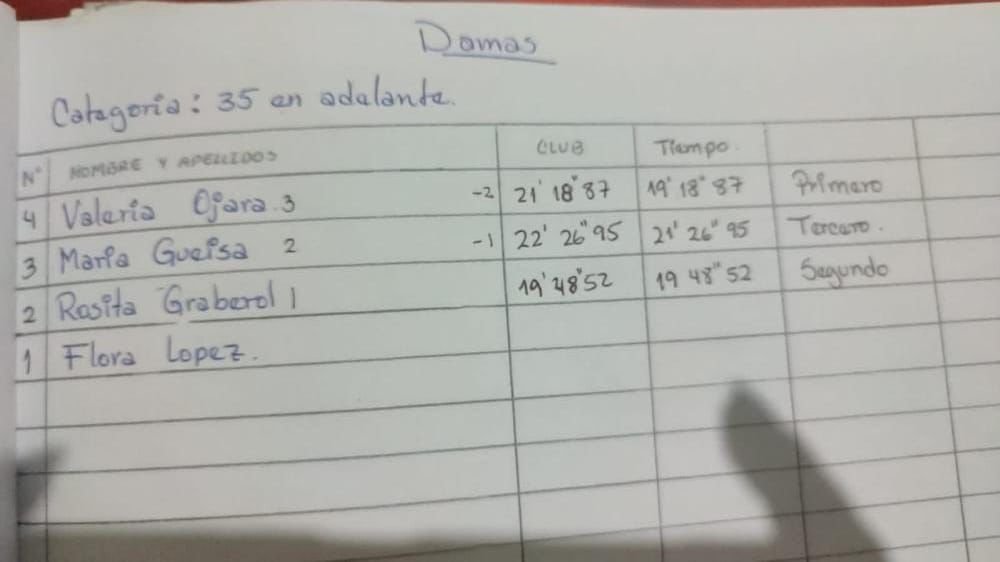 Damas
Categoria: 35 en adelante.
N° NOMBRE Y APELLIDOS CLUB Tiempo.
4 Valeria Ojara 3 -2 21' 18" 87 19' 18" 87 Primero
3 Maria Gueisa 2 -1 22' 26" 95 21' 26" 95 Tercero.
2 Rosita Graberol 1 19' 48" 52 19 48" 52 Segundo
1 Flora Lopez.